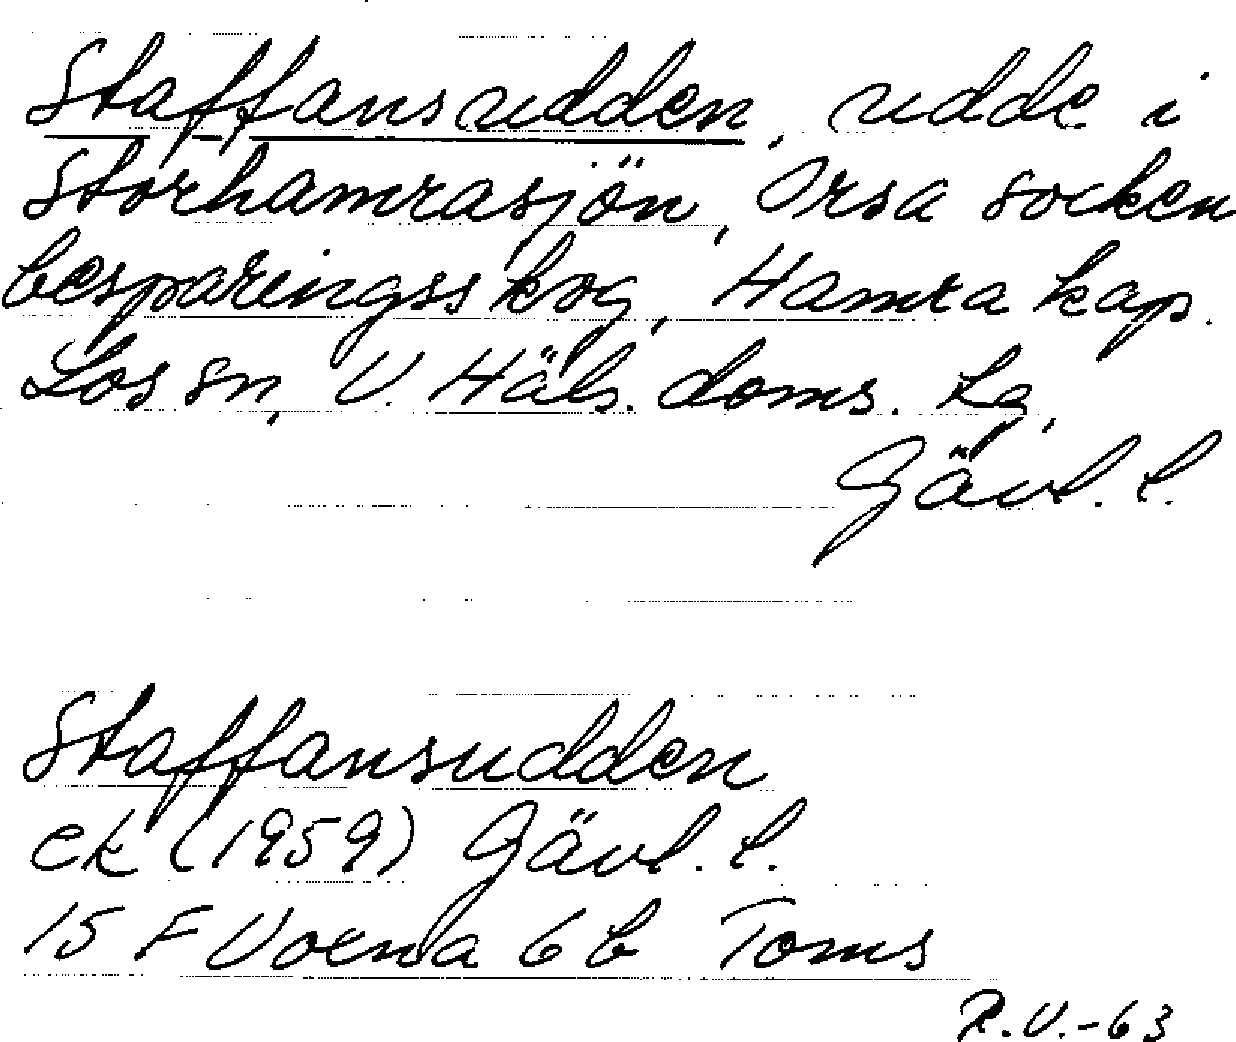 Staffansudden, udde i
Storhamrasjön, Orsa socken
besparingsskog, Hamra kap.
Los sn, V. Häls. doms. lg,
Gävl. l.
Staffansudden
ek (1959) Gävl. l.
15 F Voxna 6 b Toms
R.V.-63